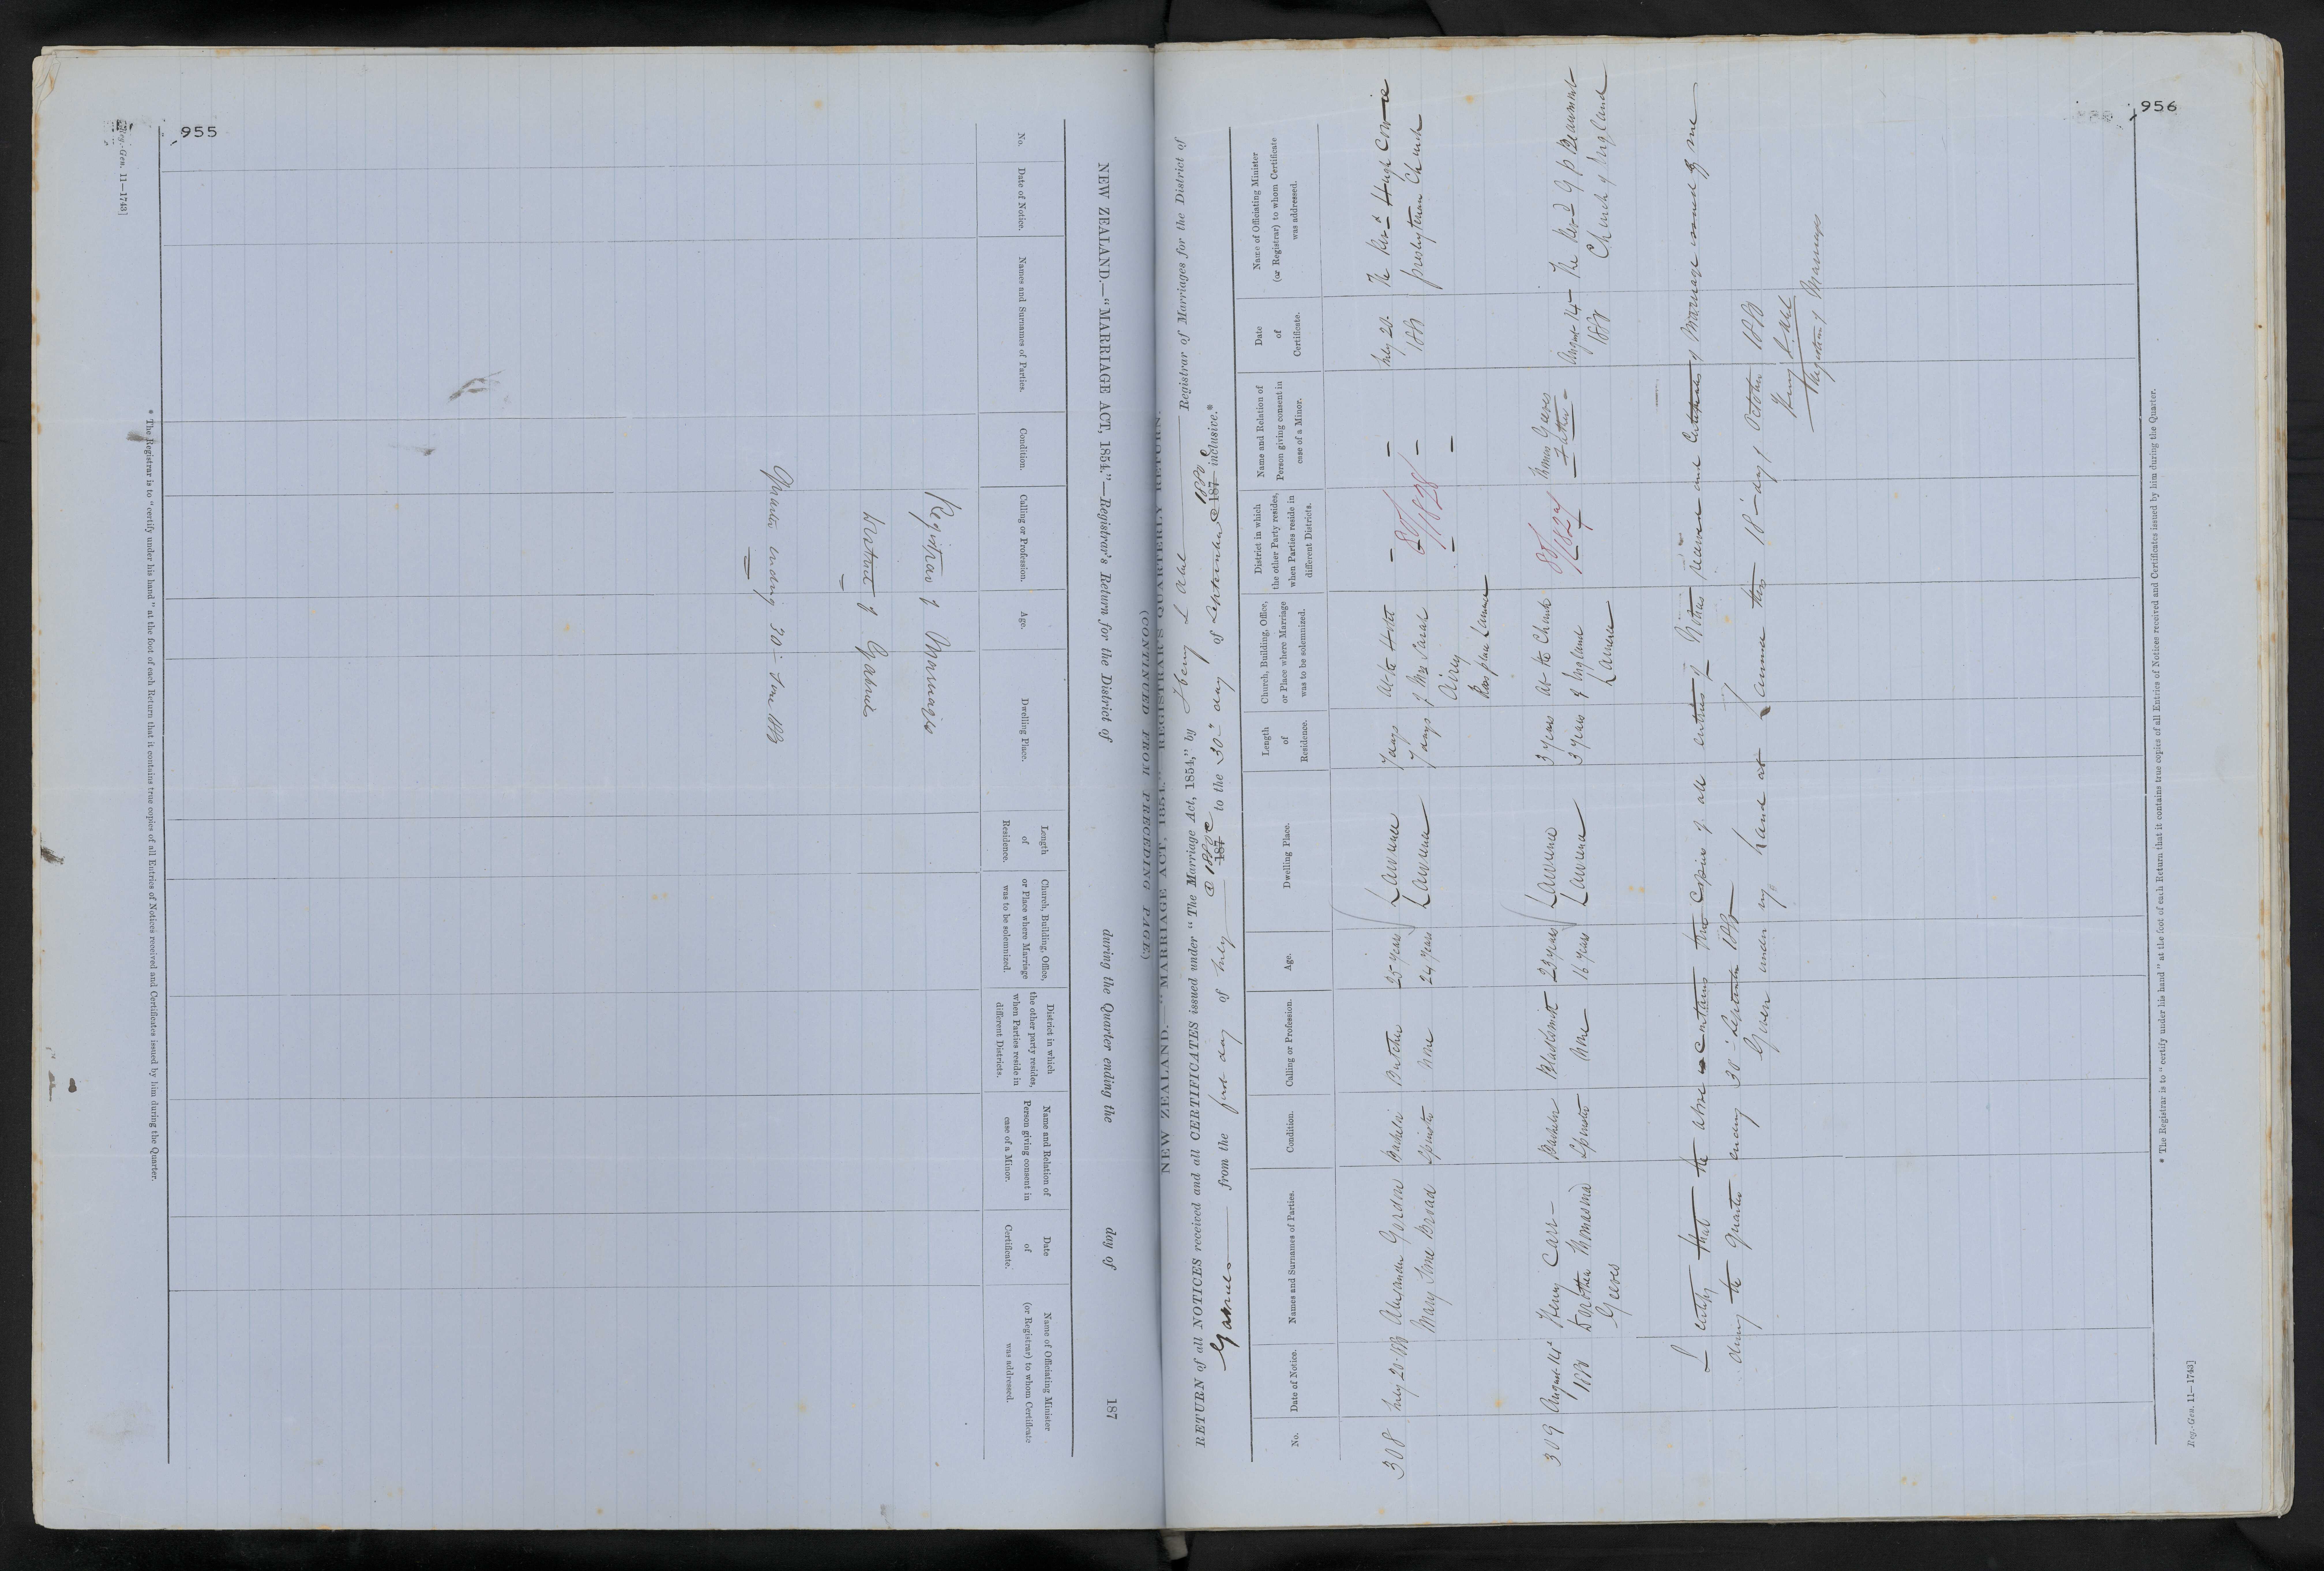 955
Reg.-Gen. 11—1743]
NEW ZEALAND.—"MARRIAGE ACT, 1854."—Registrar's Return for the District of during the Quarter ending the day of 187
No.
Date of Notice.
Names and Surnames of Parties.
Condition.
Calling or Profession.
Age.
Dwelling Place.
Length of Residence.
Church, Building, Office, or Place where Marriage was to be solemnized.
District in which the other party resides, when Parties reside in different Districts.
Name and Relation of Person giving consent in case of a Minor.
Date of Certificate.
Name of Officiating Minister (or Registrar) to whom Certificate was addressed.
Registrar of Marriages
District of Gabriels
Quarter ending 30 June
* The Registrar is to "certify under his hand" at the foot of each Return that it contains true copies of all Entries of Notices received and Certificates issued by him during the Quarter.
956
NEW ZEALAND.—"MARRIAGE ACT, 1854."—REGISTRAR'S QUARTERLY RETURN.
(CONTINUED FROM PRECEDING PAGE.)
RETURN of all NOTICES received and all CERTIFICATES issued under "The Marriage Act, 1854," by Henry Registrar of Marriages for the District of
Gabriels from the first day of July 1880 187 to the 30th day of September 1880 187 inclusive.*
No.
Date of Notice.
Names and Surnames of Parties.
Condition.
Calling or Profession.
Age.
Dwelling Place.
Length of Residence.
Church, Building, Office, or Place where Marriage was to be solemnized.
District in which the other Party resides, when Parties reside in different Districts.
Name and Relation of Person giving consent in case of a Minor.
Date of Certificate.
Name of Officiating Minister (or Registrar) to whom Certificate was addressed.
308 July 20 Alexander Gordon Bachelor Butcher 25 years Lawrence 7 days At the Hotel — — July 20 The Revd Hugh Cowie
Mary Jane Broad Spinster None 24 years Lawrence 7 days of Mrs Sarah 80/1828 — Presbyterian Church
Airey
Ross place Lawrence
309 August 14 Henry Carr — Bachelor Blacksmith 23 years Lawrence 3 years At the Church 80/1829 Thomas Greeves August 14 The Revd Beaumont
Dorothea Thomasina Spinster None 16 years Lawrence 3 years of England Father — Church of England
Greeves Lawrence
I certify that the above contains true copies of all entries of Notices received and Certificates of Marriage issued by me
during the quarter ending 30 September
Given under my hand at Lawrence this 18 day of October
Henry
Registrar of Marriages
* The Registrar is to "certify under his hand" at the foot of each Return that it contains true copies of all Entries of Notices received and Certificates issued by him during the Quarter.
Reg.-Gen. 11—1743]